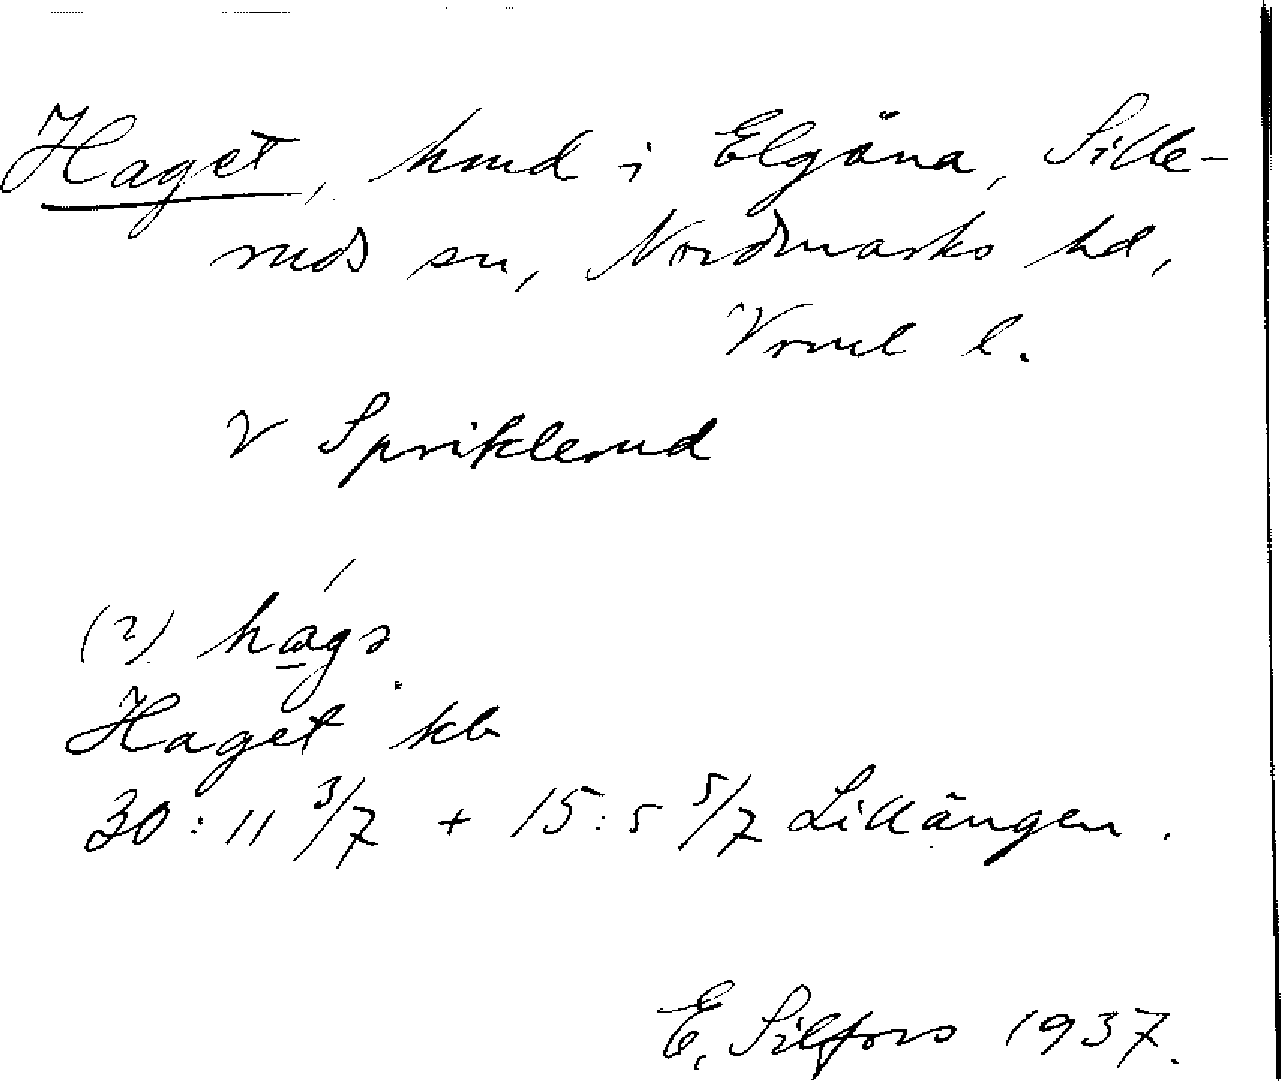 Haget, hmd i Elgåna, Sille-
ruds sn, Nordmarks hd,
Vrml l.
V Spriklerud
(2) hágə
Haget kb
30:11 3/7 + 15:5 5/7 Lillängen.
E. Silfors 1937.